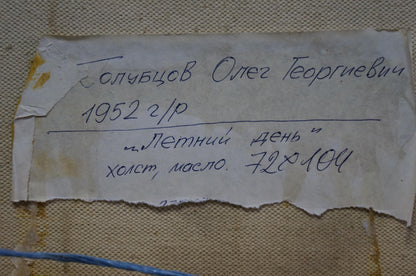 Голубцов Олег Георгиевич
1952 г/р
"Летний день"
холст, масло. 72×104